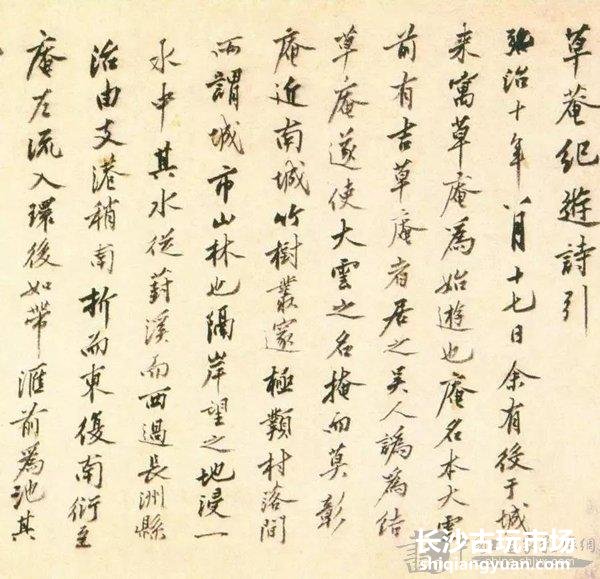 草菴紀遊詩引
弘治十年八月十七日余有役于城
来寓草庵為始遊也庵名本大雲
前有吉草庵者居之吴人譌為結
草庵遂使大雲之名掩而莫彰
庵近南城竹樹叢邃極類村落間
所謂城市山林也隔岸望之地浸一
水中其水從葑溪而西過長洲縣
治由支港稍南折而東復南衍至
庵左流入環後如帶滙前為池其
长沙古玩市场
shiqiangyuan.com